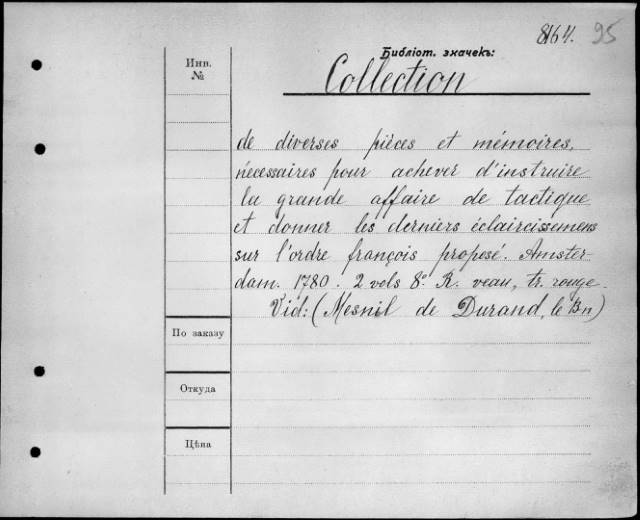 8164. 95
Библіот. значекъ:
Collection
Инв.
№
de diverses pièces et mémoires,
nécessaires pour achever d'instruire
la grande affaire de tactique
et donner les derniers éclaircissemens
sur l'ordre françois proposé. Amster-
dam. 1780. 2 vols 8º. R. veau, tr. rouge.
Vid: (Mesnil de Durand, le Bn)
По заказу
Откуда
Цѣна